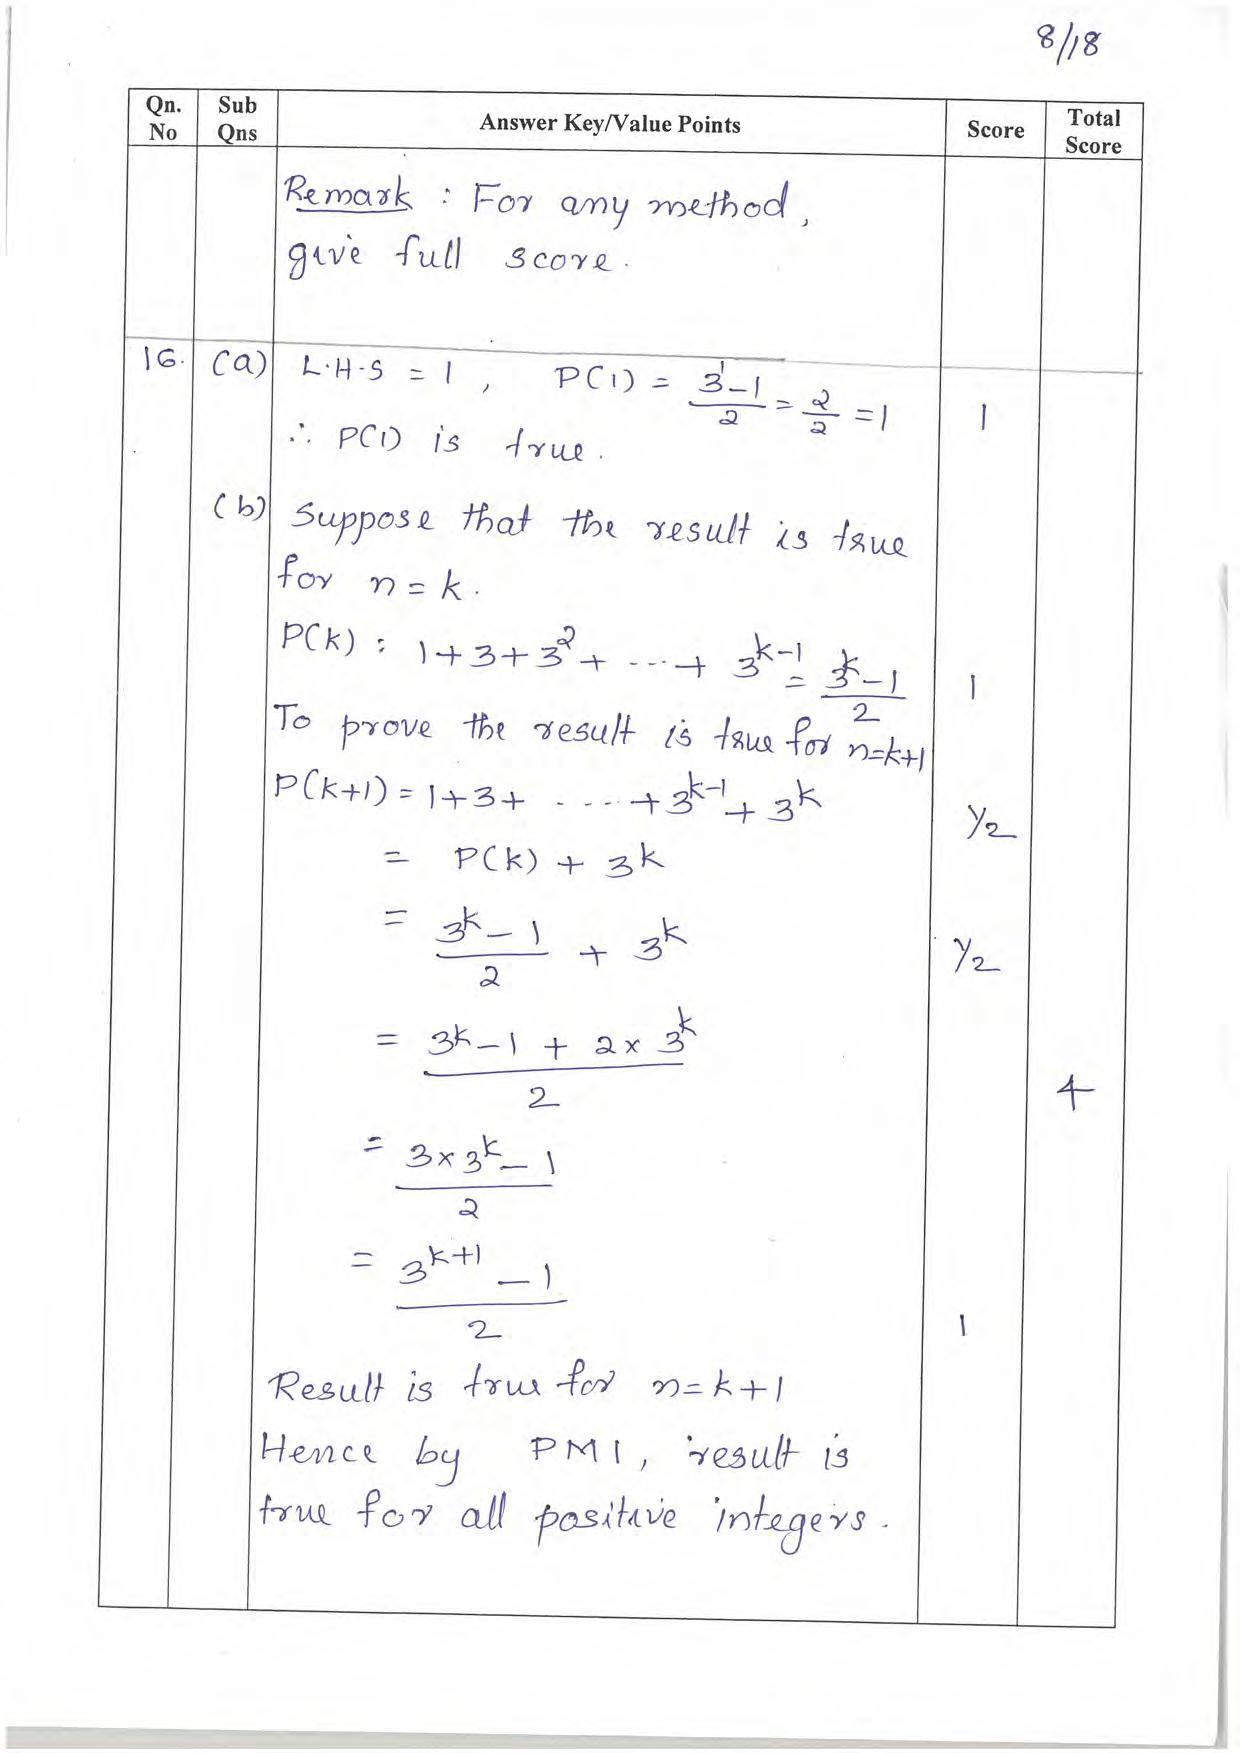 8/18
Qn. No | Sub Qns | Answer Key/Value Points | Score | Total Score
Remark : For any method,
give full score.
16. (a) L.H.S = 1 , P(1) = (3^1-1)/2 = 2/2 = 1 | 1
∴ P(1) is true.
(b) Suppose that the result is true
for n = k.
P(k) : 1+3+3^2+ ---+ 3^(k-1) = (3^k-1)/2 | 1
To prove the result is true for n=k+1
P(k+1) = 1+3+ ----+3^(k-1) + 3^k | 1/2
= P(k) + 3^k
= (3^k-1)/2 + 3^k | 1/2
= (3^k-1 + 2x3^k)/2
4
= (3x3^k-1)/2
= (3^(k+1) -1)/2 | 1
Result is true for n=k+1
Hence by PMI, result is
true for all positive integers.